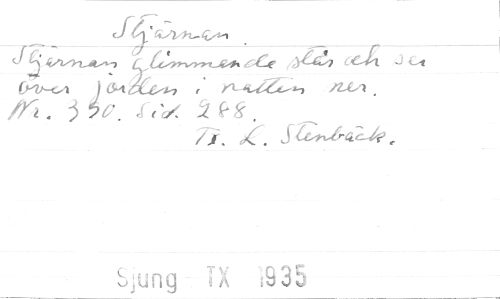 Stjärnan.
Stjärnan glimmande står och ser
över jorden i natten ner.
Nr. 390. Sid. 288.
T. L. Stenbäck.
Sjung TX 1935